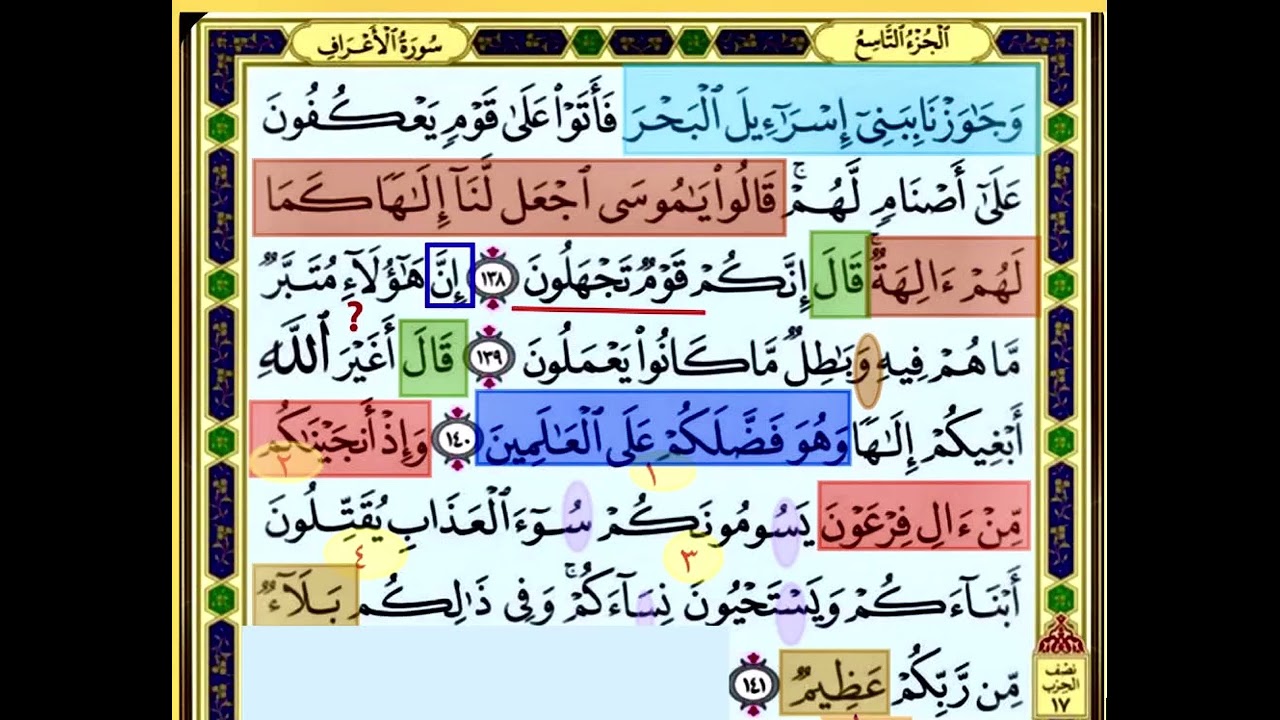 الجزء التاسع
سورة الأعراف
وَجَٰوَزْنَا بِبَنِىٓ إِسْرَٰٓءِيلَ ٱلْبَحْرَ فَأَتَوْا۟ عَلَىٰ قَوْمٍ يَعْكُفُونَ
عَلَىٰٓ أَصْنَامٍ لَّهُمْ ۚ قَالُوا۟ يَٰمُوسَى ٱجْعَل لَّنَآ إِلَٰهًا كَمَا
لَهُمْ ءَالِهَةٌ ۚ قَالَ إِنَّكُمْ قَوْمٌ تَجْهَلُونَ ١٣٨ إِنَّ هَٰٓؤُلَآءِ مُتَبَّرٌ
?
مَّا هُمْ فِيهِ وَبَٰطِلٌ مَّا كَانُوا۟ يَعْمَلُونَ ١٣٩ قَالَ أَغَيْرَ ٱللَّهِ
أَبْغِيكُمْ إِلَٰهًا وَهُوَ فَضَّلَكُمْ عَلَى ٱلْعَٰلَمِينَ ١٤٠ وَإِذْ أَنجَيْنَٰكُم
١ ٢
مِّنْ ءَالِ فِرْعَوْنَ يَسُومُونَكُمْ سُوٓءَ ٱلْعَذَابِ يُقَتِّلُونَ
٣ ٤
أَبْنَآءَكُمْ وَيَسْتَحْيُونَ نِسَآءَكُمْ ۚ وَفِى ذَٰلِكُم بَلَآءٌ
مِّن رَّبِّكُمْ عَظِيمٌ ١٤١
نصف
الحزب
١٧